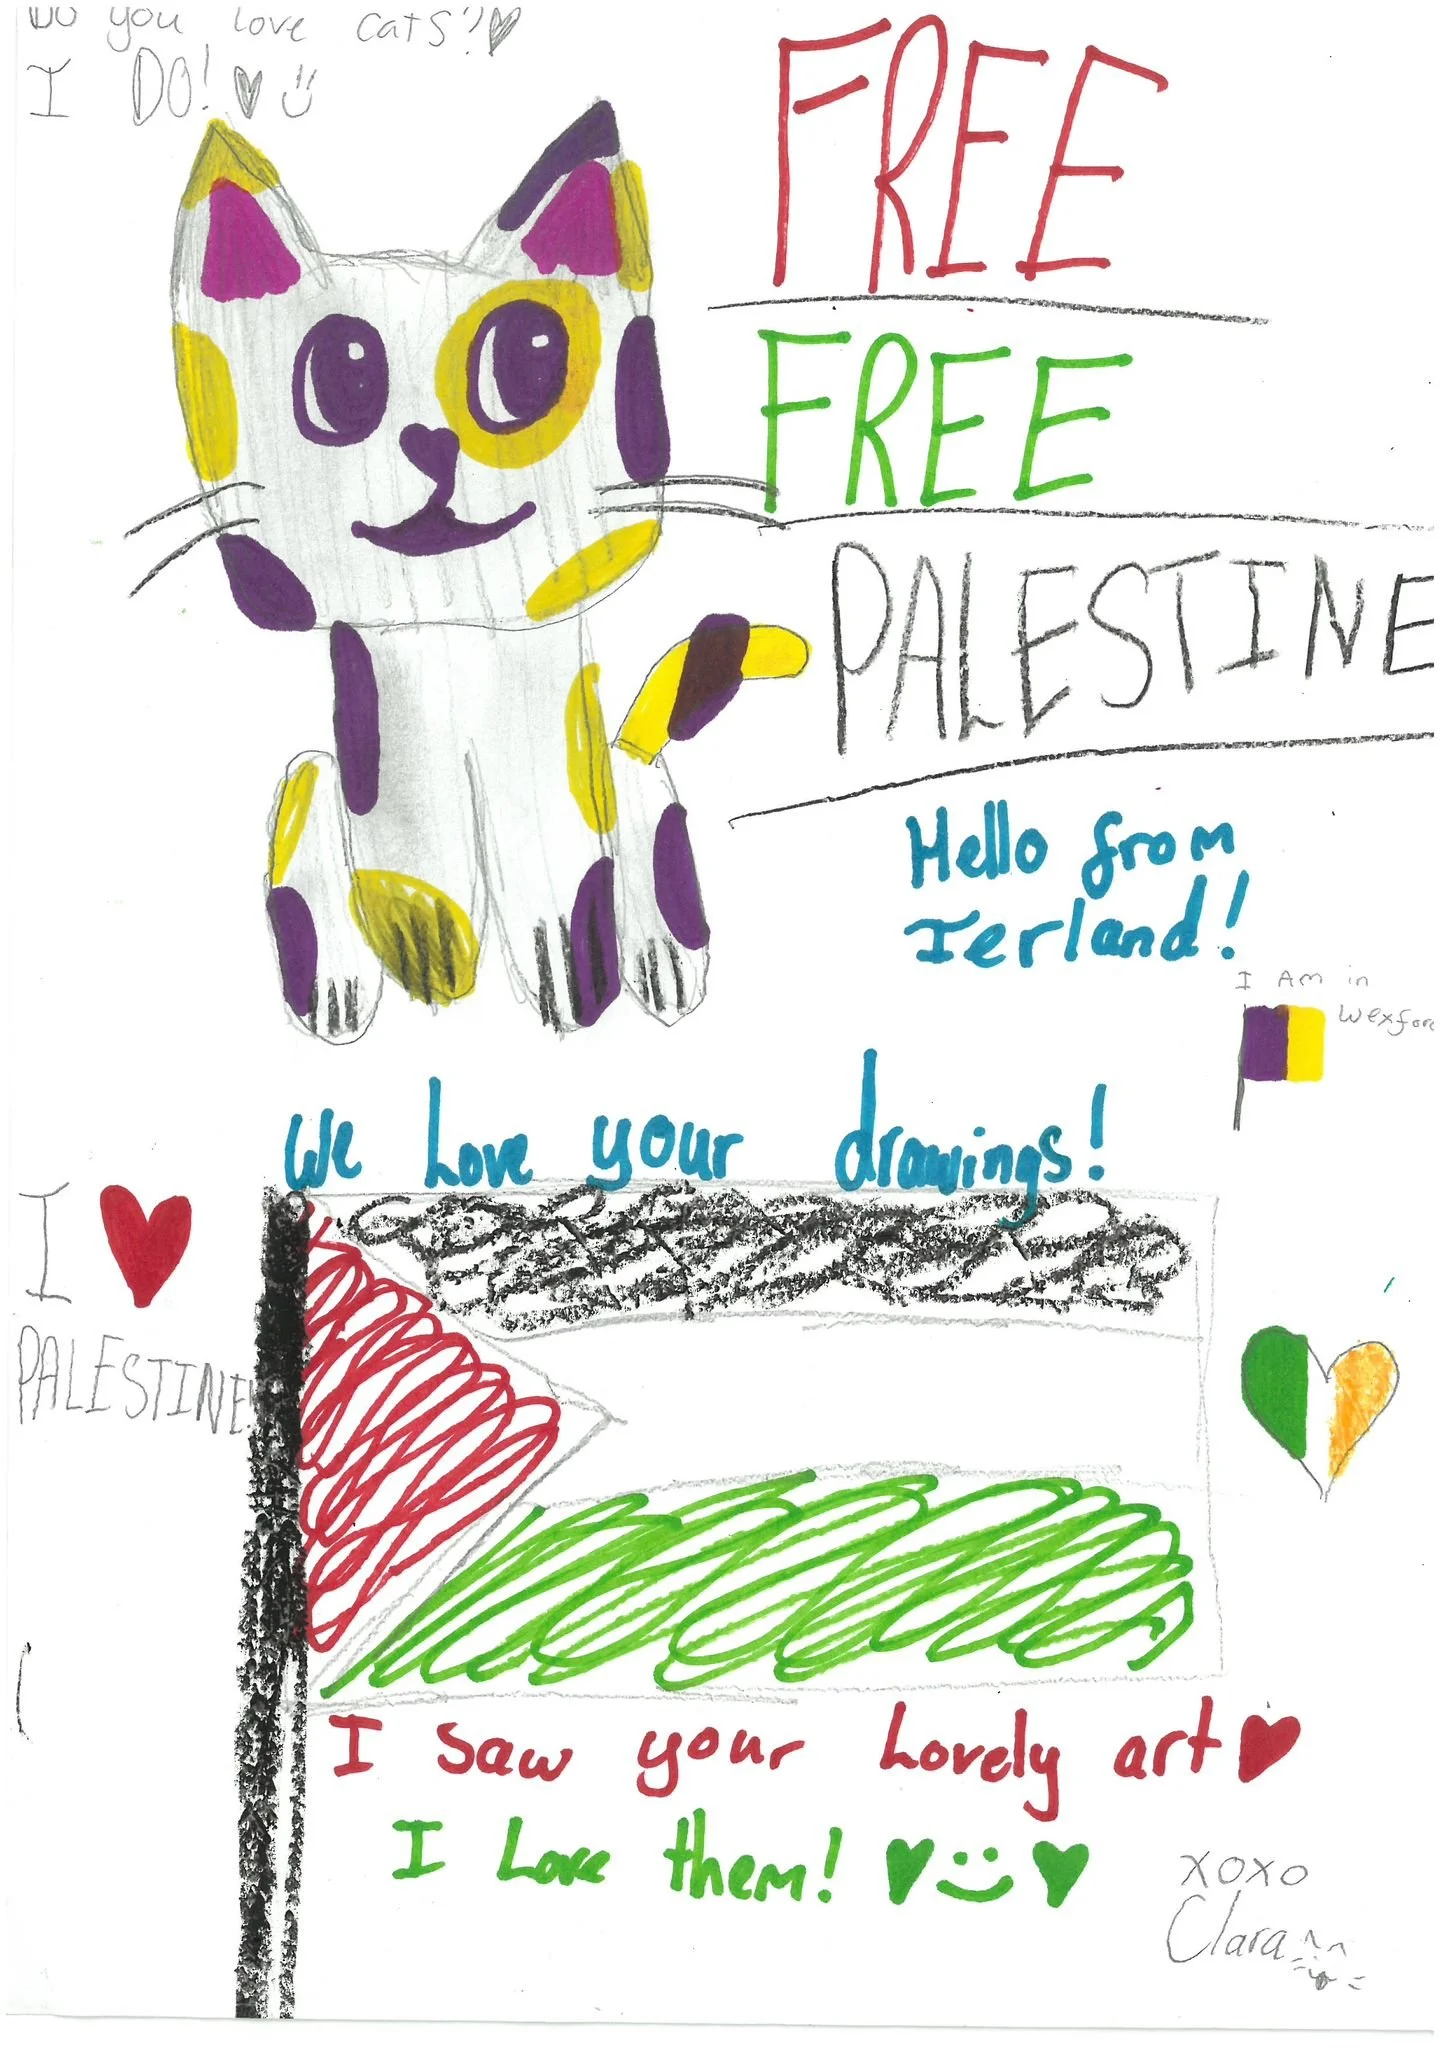 Do you love cats?
I DO!
FREE
FREE
PALESTINE
Hello from
Ierland!
I Am in
Wexford
We Love your drawings!
I
PALESTINE!
I saw your Lovely art
I Love them!
xoxo
Clara